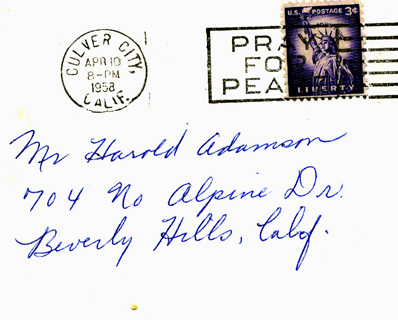 CULVER CITY,
APR 10
8-PM
1958
CALIF.
PRA
FO
PEA
U.S. POSTAGE 3¢
LIBERTY
Mr Harold Adamson
704 No Alpine Dr.
Beverly Hills, Calif.